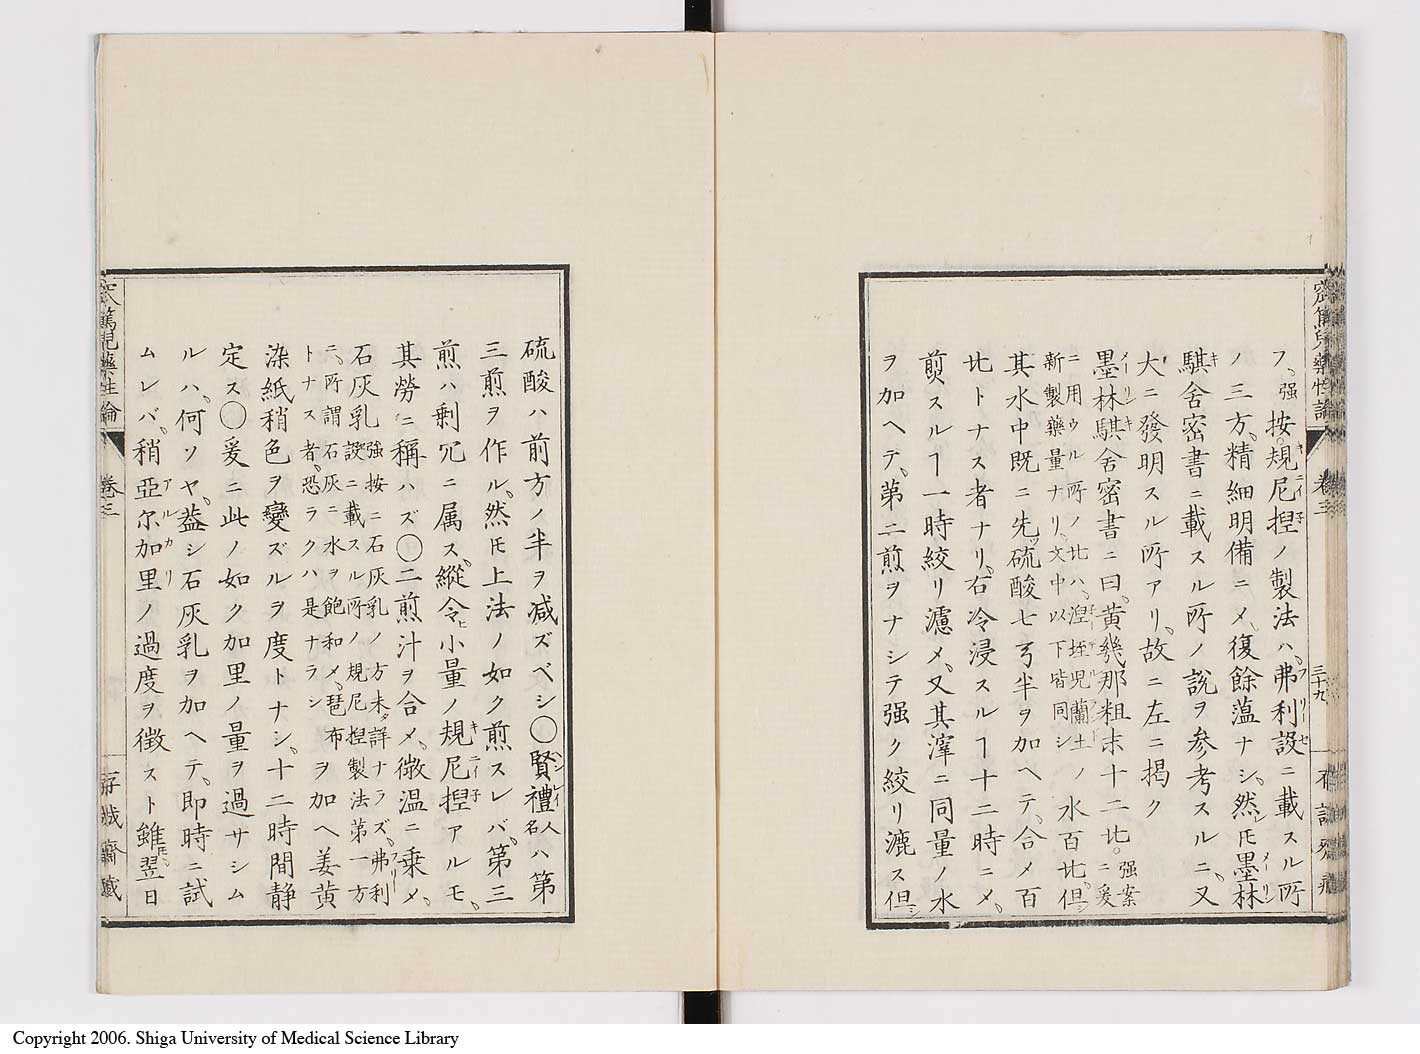 フ、強按。規尼捏ノ製法ハ、弗利設ニ載スル所
ノ三方、精細明備ニメ、復餘薀ナシ、然ㇳモ墨林
騏舎密書ニ載スル所ノ説ヲ参考スルニ、又
大ニ發明スル所アリ、故ニ左ニ掲ク
墨林騏舎密書ニ曰、黄幾那粗末十二比。強案ニ爰
ニ用ウル所ノ比ハ、涅垤児蘭土
新製藥量ナリ、文中以下皆同シ
ノ水百比、但シ
其水中既ニ先硫酸七弓半ヲ加ヘテ、合メ百
比トナス者ナリ、右冷浸スルヿ十二時ニメ、
煎スルヿ一時絞リ濾メ、又其滓ニ同量ノ水
ヲ加ヘテ、第二煎ヲナシテ强ク絞リ漉ス但シ
硫酸ハ前方ノ半ヲ减ズベシ〇賢禮人名ハ第
三煎ヲ作ル、然ㇳモ上法ノ如ク煎スレバ、第三
煎ハ剰冗ニ属ス、縱令ヒ小量ノ規尼捏アルモ、
其勞ニ稱ハズ〇二煎汁ヲ合メ、微温ニ乗メ、
石灰乳
強按ニ石灰乳ノ方未タ詳ナラズ、弗利
設ニ載スル所ノ規尼捏製法第一方
ニ、所謂石灰ニ水ヲ飽和メ、琶布
トナス者、恐ラクハ是ナラン
ヲ加ヘ姜黄
染紙稍色ヲ變ズルヲ度トナシ、十二時間静
定ス〇爰ニ此ノ如ク加里ノ量ヲ過サシム
ルハ、何ソヤ、葢シ石灰乳ヲ加ヘテ、即時ニ試
ムレバ、稍亞尔加里ノ過度ヲ徴スト雖モ、翌日
窊篤児藥性論
卷三
三十九
存誠齋藏